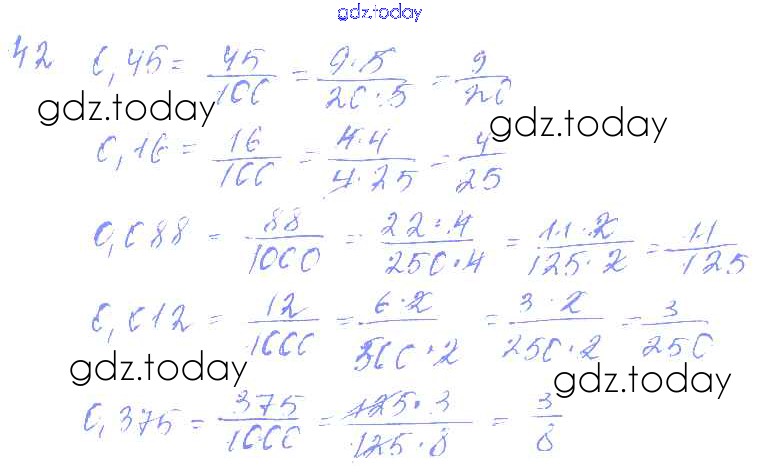 gdz.today
42 0,45 = 45/100 = 9·5/20·5 = 9/20
gdz.today
gdz.today
0,16 = 16/100 = 4·4/4·25 = 4/25
0,088 = 88/1000 = 22·4/250·4 = 11·2/125·2 = 11/125
0,012 = 12/1000 = 6·2/500·2 = 3·2/250·2 = 3/250
gdz.today
gdz.today
0,375 = 375/1000 = 125·3/125·8 = 3/8